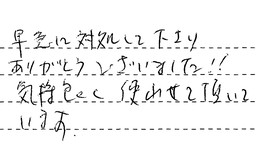 早急に対処して下さり
ありがとうございました!!
気持良く使わせて頂いて
います。